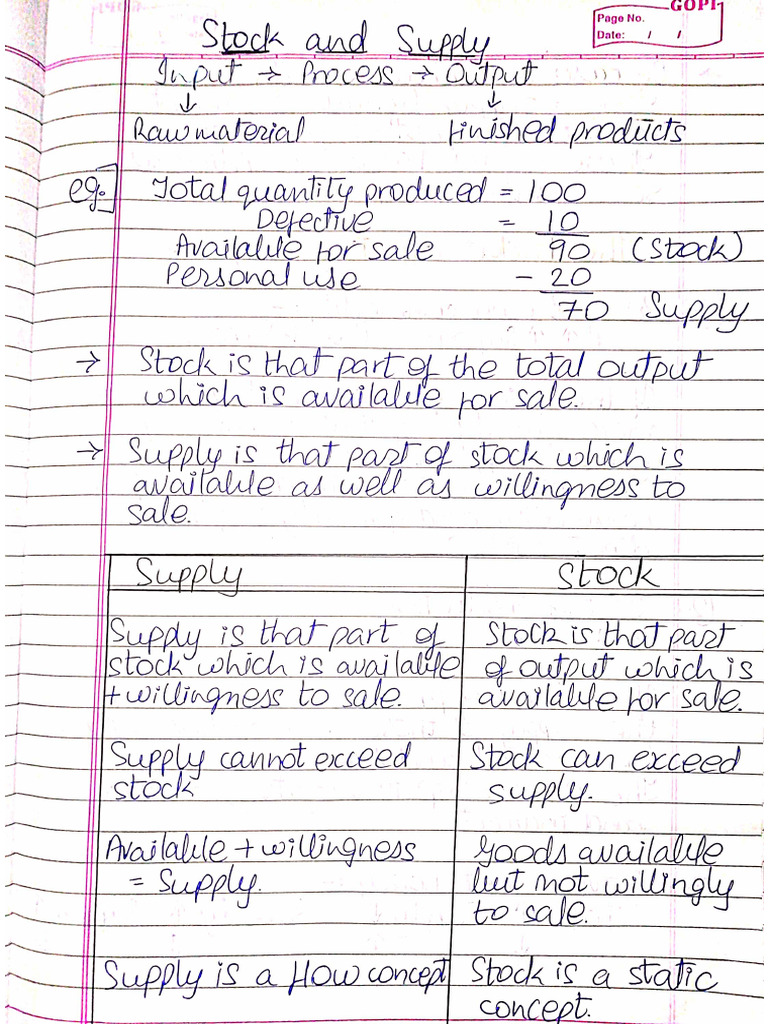 GOPI
Page No.
Date: / /
Stock and Supply
Input → Process → Output
↓ ↓
Raw material Finished products
eg. Total quantity produced = 100
Defective = 10
Available for sale 90 (Stock)
Personal use - 20
70 Supply
→ Stock is that part of the total output
which is available for sale.
→ Supply is that part of stock which is
available as well as willingness to
sale.
Supply Stock
Supply is that part of Stock is that part
stock which is available of output which is
+ willingness to sale. available for sale.
Supply cannot exceed Stock can exceed
stock supply.
Available + willingness Goods available
= Supply. but not willingly
to sale.
Supply is a flow concept Stock is a static
concept.